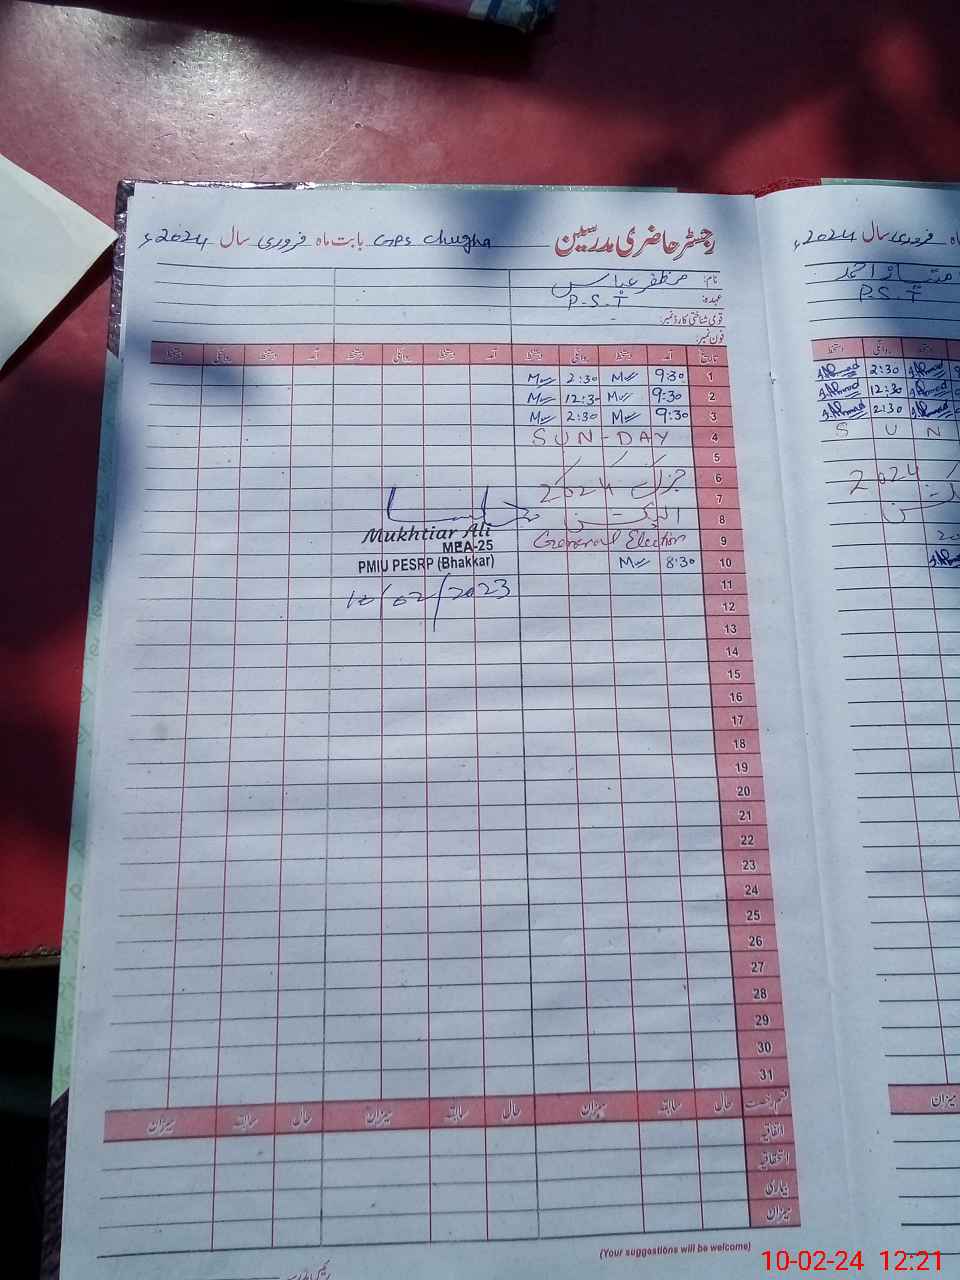 رجسٹر حاضری مدرسین GPS Chugha بابت ماہ فروری سال 2024ء
نام: مظفر عباس
عہدہ: P.S.T
قومی شناختی کارڈ نمبر:
فون نمبر:
تاریخ آمد دستخط روانگی دستخط آمد دستخط روانگی دستخط آمد دستخط روانگی دستخط
1 9:30 M 2:30 M
2 9:30 M 12:30 M
3 9:30 M 2:30 M
4 SUN-DAY
5
6 جنرل 2024
7
8 الیکشن
9 General Election
10 8:30 M
11
12
13
14
15
16
17
18
19
20
21
22
23
24
25
26
27
28
29
30
31
Mukhtiar Ali
MEA-25
PMIU PESRP (Bhakkar)
10/02/2023
قسم رخصت حال سابقہ میزان حال سابقہ میزان حال سابقہ میزان
اتفاقیہ
استحقاقیہ
بیماری
میزان
(Your suggestions will be welcome)
ماہ فروری سال 2024ء
ممتاز احمد
P.S.T
دستخط روانگی دستخط
J.Ahmad 2:30 J.Ahmad 9
J.Ahmad 12:30 J.Ahmad
J.Ahmad 2:30 J.Ahmad
S U N
2024
20
میزان
10-02-24 12:21